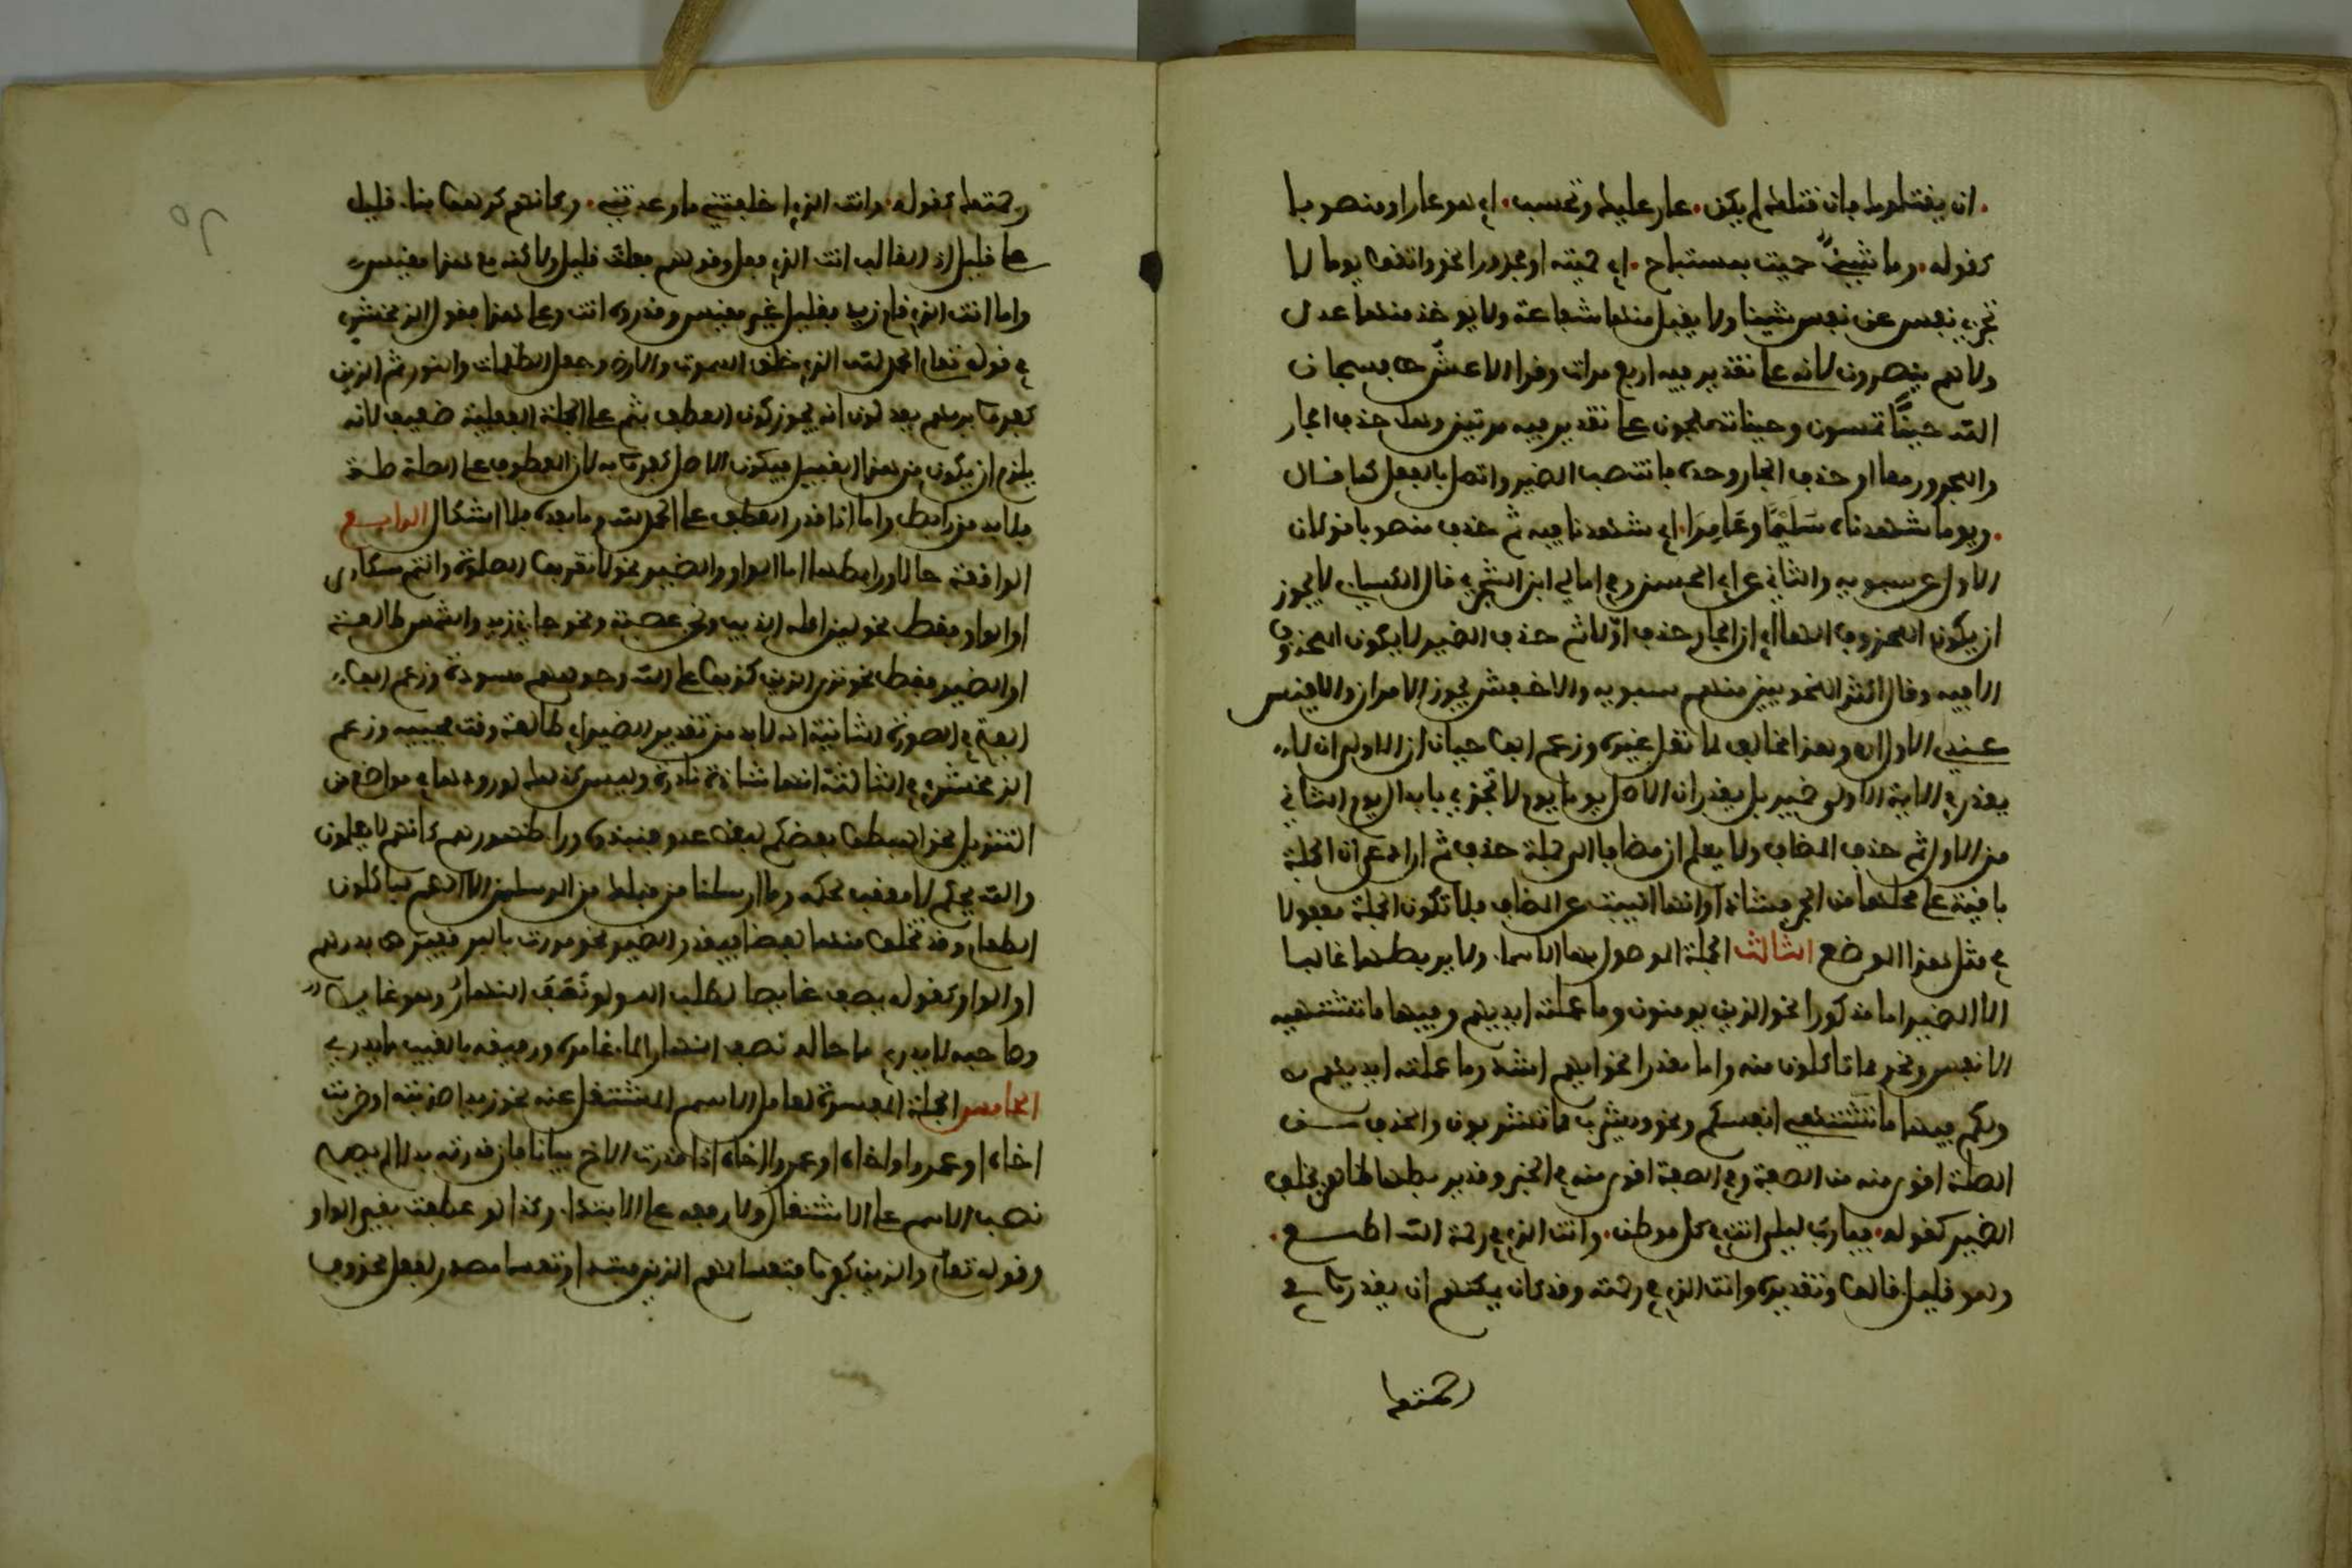 ان يقتلوك فان قتلك لم يكن عار عليك وتحسب اي هو عار او منصوبا
كقوله وما شيء حميت بمستباح اي حميته او مجرورا نحو واتقوا يوما لا
تجزي نفس عن نفس شيئا ولا يقبل منها شفاعة ولا يوخذ منها عدل
ولا هم ينصرون لانه على تقدير فيه اربع مرات وقرا الاعشى فسبحان
الله حينًا تمسون وحينا تصبحون على تقدير فيه مرتين وهل حذف الجار
والمجرور معا او حذف الجار وحده فانتصب الضمير واتصل بالفعل كما قال
ويوما شهدناه سليما وعامرا اي شهدنا فيه ثم حذف منصوبا قولان
الاول عن سيبويه والثاني عن ابي الحسن وفي امالي ابن الشجري قال الكسائي لا يجوز
ان يكون المحذوف الا الها اي ان الجار حذف اوّلا ثم حذف الضمير لا يكون المحذوف
الا فيه وقال اكثر النحويين منهم سيبويه والاخفش يجوز الامران والاقيس
عندي الاول اه وهذا مخالف لما نقل غيره وزعم ابو حيان ان الاولى ان لا
يقدر في الاية الاولى ضمير بل يقدر ان الاصل يوما يوم لا تجزي بابدال يوم الثاني
من الاول ثم حذف المضاف ولا يعلم ان مضافا الى جملة حذف ثم ان ادعى ان الجملة
باقية على محلها من الجر فشاذ او انها انيبت عن المضاف فلا تكون الجملة مفعولا
في مثل هذا الموضع الثالث الجملة الموصول بها الاسما ولا يربطها غالبا
الا الضمير اما مذكورا نحو الذين يومنون وما عملته ايديهم وفيها ما تشتهيه
الانفس ونحو مما تاكلون منه واما مقدرا نحو ايهم اشد وما عملته ايديهم
ولكم فيها ما تشتهي انفسكم ونحو ويشرب مما تشربون والحذف من
الصلة اقوى منه من الصفة وفي الصفة اقوى منه في الخبر وقد يربطها ظاهر يخلف
الضمير كقوله فيا رب ليلى انت في كل موطن وانت الذي في رحمة الله اطمع
وهو قليل قالوا وتقديره وانت الذي في رحمته وقد كان يمكنهم ان يقدروا في
رحمتك
رحمتك كقوله وانت الذي اخلفتني ما وعدتني وكانهم كرهوا بنا قليل
على قليل اذ الغالب انت الذي فعل وقولهم فعلت قليل ولاكنه مع هذا مقيس
واما انت الذي قام زيد فقليل غير مقيس وقدره انت وعلى هذا فقول الزمخشري
في قوله تعلى الحمد لله الذي خلق السموت والارض وجعل الظلمات والنور ثم الذين
كفروا بربهم يعدلون انه يجوز كون العطف بثم على الجملة الفعلية ضعيف لانه
يلزم ان يكون من هذا القبيل فيكون الاصل كفروا به لان المعطوف على الصلة صلة
فلا بد من رابط واما اذا قدر العطف على الحمد لله وما بعده فلا اشكال الرابع
الواقعة حالا ورابطها اما الواو والضمير نحو لا تقربوا الصلوة وانتم سكارى
او الواو فقط نحو لين اكله الذيب ونحن عصبة ونحو جا زيد والشمس طالعة
او الضمير فقط نحو ترى الذين كذبوا على الله وجوههم مسودة وزعم ابو
الفتح في الصورة الثانية انه لا بد من تقدير الضمير اي طالعة وقت مجيئه وزعم
الزمخشري في الثالثة انها شاذة نادرة وليس كذلك لورودها في مواضع من
التنزيل نحو اهبطوا بعضكم لبعض عدو فنبذوه ورا ظهورهم كانهم لا يعلمون
والله يحكم لا معقب لحكمه وما ارسلنا من قبلك من المرسلين الا انهم لياكلون
الطعام وقد تخلو منها لفظا فيقدر الضمير نحو مررت بالبر قفيزا بدرهم
او الواو كقوله يصف غايصا لطلب اللولو نَصَف النهارُ وهو غايص
وصاحبه لا يدري ما حاله نصف النهار الما غامره ورفيقه بالغيب ما يدري
الخامس الجملة المفسرة لعامل الاسم المشتغل عنه نحو زيدا ضربته او ضربت
اخاه او عمروا واخاه او عمروا اخاه اذا قدرت الاخ بيانا فان قدرته بدلا لم يصح
نصب الاسم على الاشتغال ولا رفعه على الابتدا وكذا لو عطفت بغير الواو
وقوله تعلى والذين كفروا فتعسا لهم الذين مبتدا وتعسا مصدر لفعل محذوف